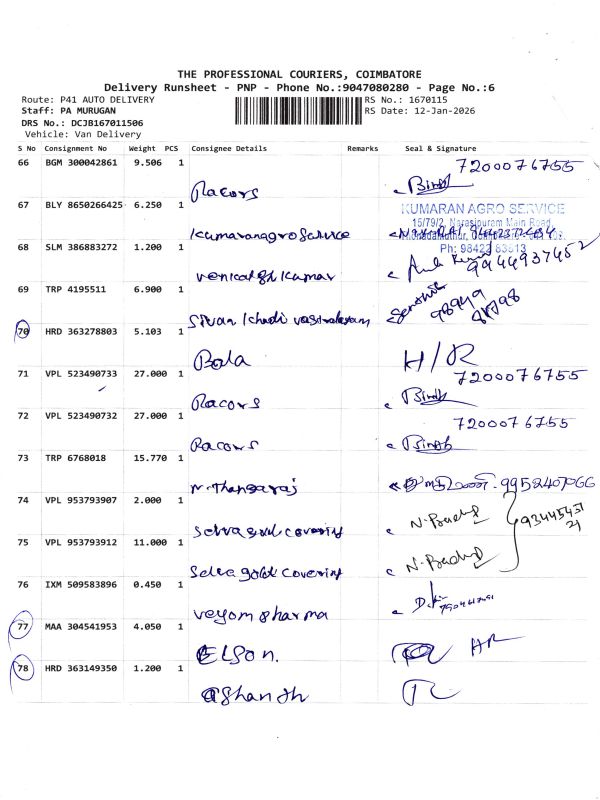 THE PROFESSIONAL COURIERS, COIMBATORE
Delivery Runsheet - PNP - Phone No.:9047080280 - Page No.:6
Route: P41 AUTO DELIVERY
RS No.: 1670115
Staff: PA MURUGAN
RS Date: 12-Jan-2026
DRS No.: DCJB167011506
Vehicle: Van Delivery
S No Consignment No Weight PCS Consignee Details Remarks Seal & Signature
66 BGM 300042861 9.506 1
7200076755
Racors Bindh
67 BLY 8650266425 6.250 1
KUMARAN AGRO SERVICE
15/79/2, Narasipuram Main Road,
Kumaranagro Service
Ph: 98422 83513
68 SLM 386883272 1.200 1
venkatesh kumar 9944937452
69 TRP 4195511 6.900 1
Sivan khadi vastralayam 98949
70 HRD 363278803 5.103 1
Bala H/R
71 VPL 523490733 27.000 1
7200076755
Racors Bindh
72 VPL 523490732 27.000 1
7200076755
Racors Bindh
73 TRP 6768018 15.770 1
N. Thangaraj 9952407066
74 VPL 953793907 2.000 1
Selva gold covering
75 VPL 953793912 11.000 1
Selva gold covering
76 IXM 509583896 0.450 1
veyom sharma
77 MAA 304541953 4.050 1
Elson.
78 HRD 363149350 1.200 1
ashanth